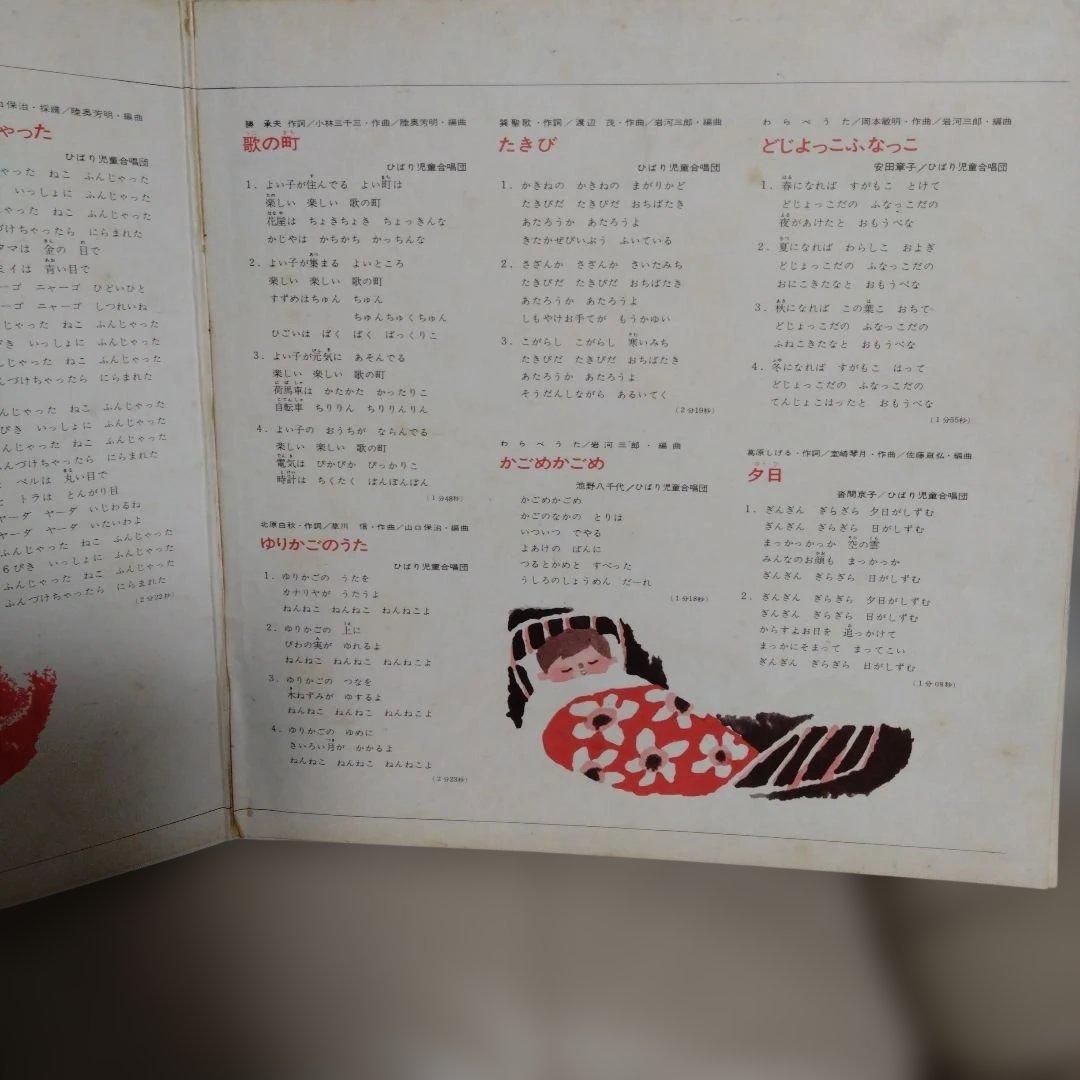 口保治・採譜／陸奥芳明・編曲
ゃった
ひばり児童合唱団
ゃった ねこ ふんじゃった
いっしょに ふんじゃった
ゃった ねこ ふんじゃった
づけちゃったら にらまれた
タマは 金の 目で
ミイは 青い目で
ーゴ ニャーゴ ひどいひと
ーゴ ニャーゴ しつれいね
じゃった ねこ ふんじゃった
ぴき いっしょに ふんじゃった
しゃった ねこ ふんじゃった
んづけちゃったら にらまれた
んじゃった ねこ ふんじゃった
ぴき いっしょに ふんじゃった
んじゃった ねこ ふんじゃった
んづけちゃったら にらまれた
ベルは 丸い目で
トラは とんがり目
ヤーダ ヤーダ いじわるね
ヤーダ ヤーダ いたいわよ
ふんじゃった ねこ ふんじゃった
6ぴき いっしょに ふんじゃった
ふんじゃった ねこ ふんじゃった
ふんづけちゃったら にらまれた
（2分22秒）
勝 承夫 作詞／小林三千三・作曲／陸奥芳明・編曲
歌の町
ひばり児童合唱団
1．よい子が住んでる よい町は
楽しい 楽しい 歌の町
花屋は ちょきちょき ちょっきんな
かじやは かちかち かっちんな
2．よい子が集まる よいところ
楽しい 楽しい 歌の町
すずめはちゅん ちゅん
ちゅんちゅくちゅん
ひごいは ぱく ぱく ぱっくりこ
3．よい子が元気に あそんでる
楽しい 楽しい 歌の町
荷馬車は かたかた かったりこ
自転車 ちりりん ちりりんりん
4．よい子の おうちが ならんでる
楽しい 楽しい 歌の町
電気は ぴかぴか ぴっかりこ
時計は ちくたく ぼんぼんぼん
（1分48秒）
北原白秋・作詞／草川 信・作曲／山口保治・編曲
ゆりかごのうた
ひばり児童合唱団
1．ゆりかごの うたを
カナリヤが うたうよ
ねんねこ ねんねこ ねんねこよ
2．ゆりかごの 上に
びわの実が ゆれるよ
ねんねこ ねんねこ ねんねこよ
3．ゆりかごの つなを
木ねずみが ゆするよ
ねんねこ ねんねこ ねんねこよ
4．ゆりかごの ゆめに
きいろい月が かかるよ
ねんねこ ねんねこ ねんねこよ
（2分23秒）
巽聖歌・作詞／渡辺 茂・作曲／岩河三郎・編曲
たきび
ひばり児童合唱団
1．かきねの かきねの まがりかど
たきびだ たきびだ おちばたき
あたろうか あたろうよ
きたかぜぴいぷう ふいている
2．さざんか さざんか さいたみち
たきびだ たきびだ おちばたき
あたろうか あたろうよ
しもやけお手てが もうかゆい
3．こがらし こがらし 寒いみち
たきびだ たきびだ おちばたき
あたろうか あたろうよ
そうだんしながら あるいてく
（2分19秒）
わらべうた／岩河三郎・編曲
かごめかごめ
池野八千代／ひばり児童合唱団
かごめかごめ
かごのなかの とりは
いついつ でやる
よあけの ばんに
つるとかめと すべった
うしろのしょうめん だーれ
（1分18秒）
わらべうた／岡本敏明・作曲／岩河三郎・編曲
どじよっこふなっこ
安田章子／ひばり児童合唱団
1．春になれば すがもこ とけて
どじょっこだの ふなっこだの
夜があけたと おもうべな
2．夏になれば わらしこ およぎ
どじょっこだの ふなっこだの
おにこきたなと おもうべな
3．秋になれば この葉こ おちて
どじょっこだの ふなっこだの
ふねこきたなと おもうべな
4．冬になれば すがもこ はって
どじょっこだの ふなっこだの
てんじょこはったと おもうべな
（1分55秒）
葛原しげる・作詞／室崎琴月・作曲／佐藤亘弘・編曲
夕日
沓間京子／ひばり児童合唱団
1．ぎんぎん ぎらぎら 夕日がしずむ
ぎんぎん ぎらぎら 日がしずむ
まっかっかっか 空の雲
みんなのお顔も まっかっか
ぎんぎん ぎらぎら 日がしずむ
2．ぎんぎん ぎらぎら 夕日がしずむ
ぎんぎん ぎらぎら 日がしずむ
からすよお日を 追っかけて
まっかにそまって まってこい
ぎんぎん ぎらぎら 日がしずむ
（1分08秒）